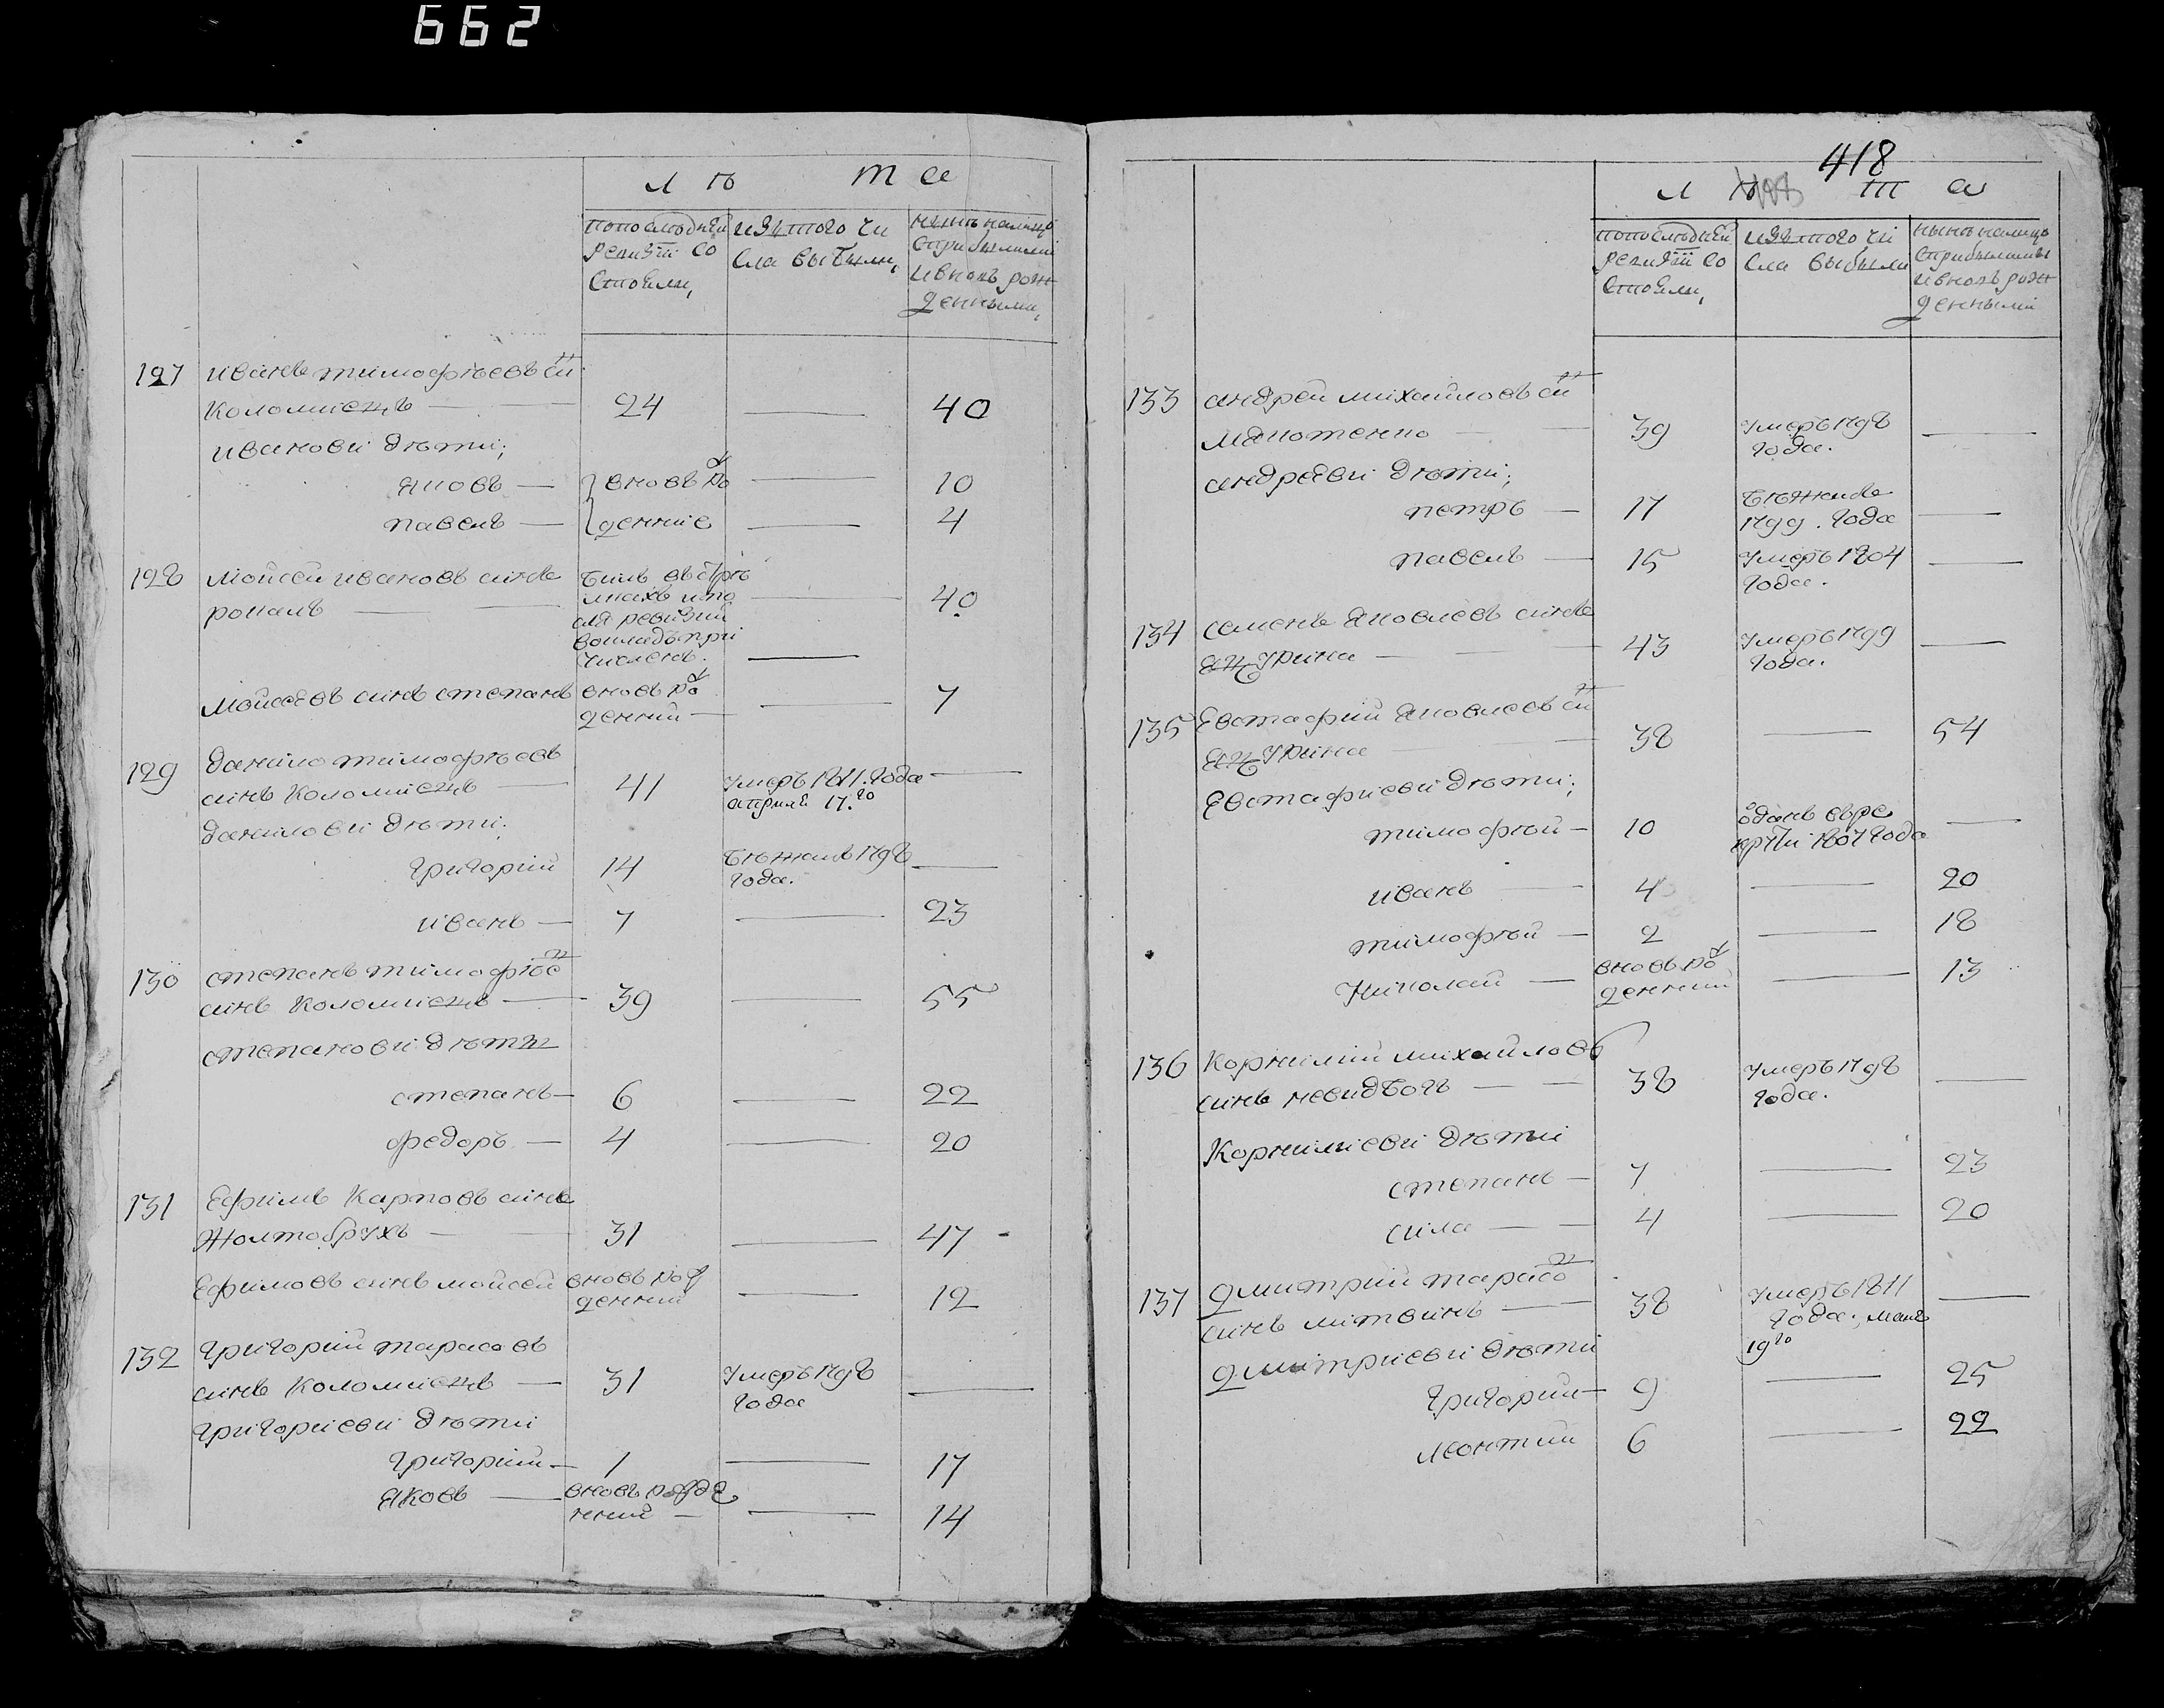 662
Лѣта
попослѣдней ревизіи состояли,
изътого числа выбыли,
нынѣ налицо сприбылыми ивновь рожденными,
127 иванъ тимофѣевъ снъ
коломіецъ — 24 — 40
иванови дѣти;
яковъ — вновь ро 10
павелъ — денніе — 4
128 мойсей ивановъ синъ билъ вбѣг
ропалъ — — 40
мойсеевъ синъ степанъ вновь ро — 7
денний —
129 данило тимофѣевъ
синъ коломіецъ — 41 умеръ 1811. года —
априля 17.го
данилови дѣти;
григорий 14 бѣжалъ 1798 —
года.
иванъ — 7 — 23
130 степанъ тимофѣе
синъ коломіецъ — 39 — 55
степанови дѣти
степанъ — 6 — 22
федоръ — 4 — 20
131 Ефимъ Карповъ синъ
жолтобрухъ — 31 — 47
Ефимовъ синъ мойсей вновь рож — 12
денний
132 григорий тарасовъ
синъ коломіецъ — 31 умеръ 1798 —
года
григориеви дѣти
григорий — 1 — 17
яковъ — вновь рожде
нний — — 14
418
Лѣта
попослѣдней ревизіи состояли,
изътого числа выбыли
нынѣ налицо сприбылыми ивновь рожденными
133 андрей михайловъ снъ
39 умеръ 1798 —
года.
андрееви дѣти;
петръ — 17 бѣжалъ —
1799. года
павелъ — 15 умеръ 1804 —
года.
134 семенъ яковлевъ синъ
43 умеръ 1799 —
года.
135 Евстафий яковлевъ снъ
38 — 54
Евстафиеви дѣти;
тимофѣй — 10 оданъ врекрути 1807 года —
иванъ — 4 — 20
тимофѣй — 2 — 18
Николай — вновь ро — 13
денний
136 корнилий михайловъ
синъ — 38 умеръ 1798 —
года.
Корнилиеви дѣти
степанъ — 7 — 23
сила — 4 — 20
137 дмитрий тарасо
синъ литвинъ — 38 умеръ 1811 —
года, мая
19го
дмитриеви дѣти
григорий — 9 — 25
леонтий 6 — 22